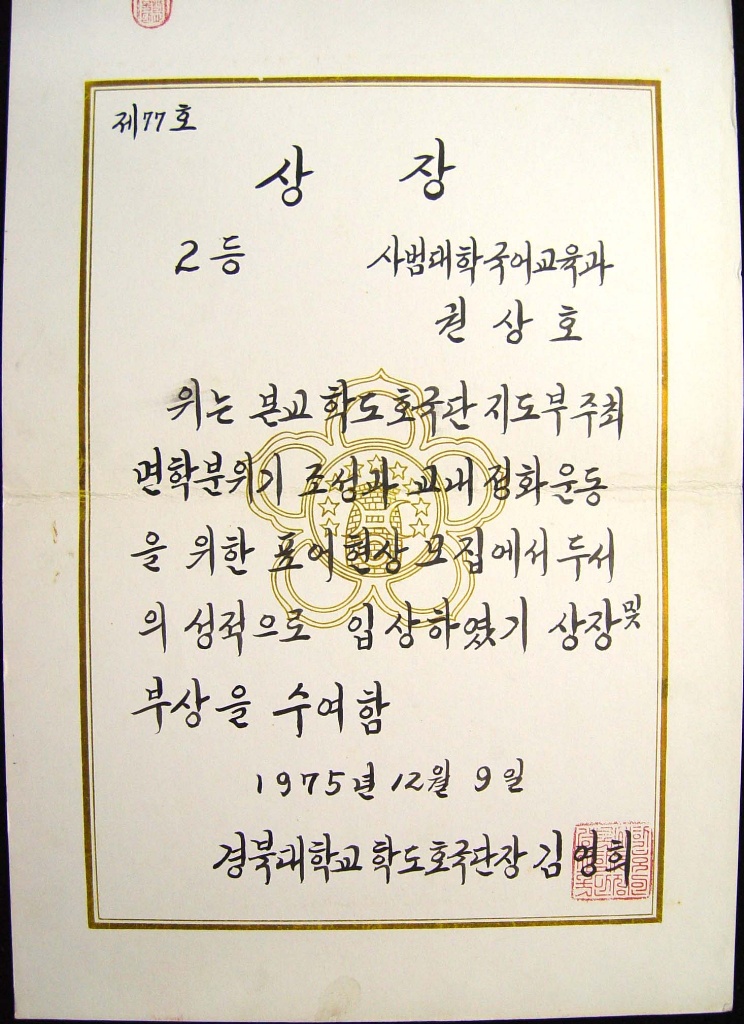 제77호
상 장
2등 사범대학국어교육과
권 상 호
위는 본교 학도호국단 지도부주최
면학분위기 조성과 교내 정화운동
을 위한 표어현상 모집에서 두서
의 성적으로 입상하였기 상장및
부상을 수여함
1975년 12월 9일
경북대학교 학도호국단장 김영희